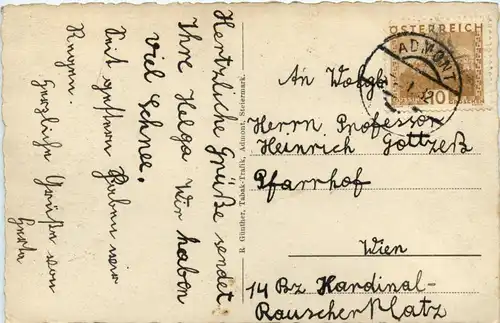 Hertzliche Grüße sendet
Ihre Helga Wir haben
viel Schnee.
Seit gestern haben wir
Regen.
Herzliche Grüße von
Herta
R. Günther, Tabak-Trafik, Admont, Steiermark.
ÖSTERREICH
ADMONT
10
An
Herrn Professor
Heinrich Gottzeß
Pfarrhof
Wien
14 Bz Kardinal-
Rauscher Platz